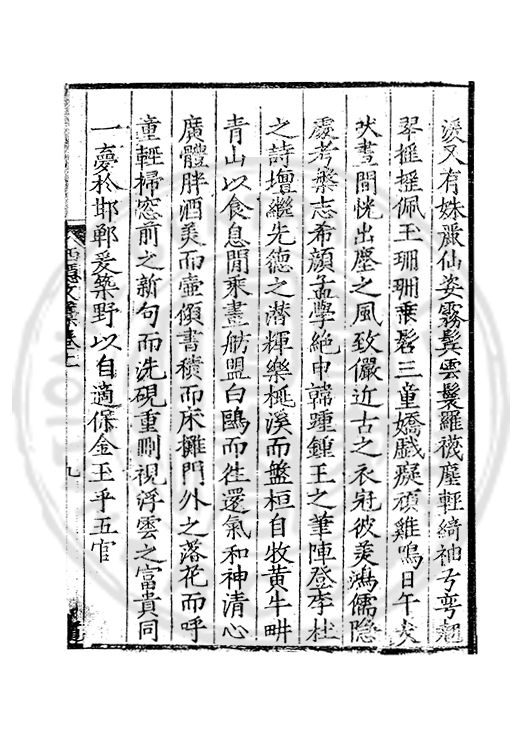 湲又有姝麗仙姿霧鬓雲鬟羅襪塵輕綺袖弓彎翹
翠摇摇佩玉珊珊乗髫三童嬌戲癡頑雞鳴日午犬
吠晝間恍出塵之風致儼近古之衣冠彼美鴻儒隐
處考槃志希顔孟學絶申韓踵鍾王之筆陣登李杜
之詩壇繼先德之潜輝樂桃溪而盤桓自牧黄牛畊
青山以食息閒乘畫舫盟白鷗而徃還氣和神清心
廣體胖酒美而壷傾書積而床攤門外之落花而呼
童輕掃窓前之新句而洗硯重刪視浮雲之富貴同
一夢於邯鄲爰築野以自適保金玉乎五官
九